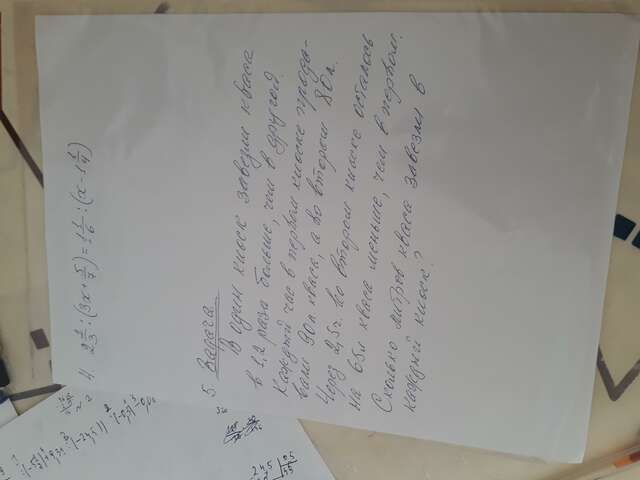 4) 2 1/3 : (3x + 5/7) = 1 1/6 : (x - 1 1/4)
5. Задача
В один киоск завезли кваса
в 1,2 раза больше, чем в другой.
Каждый час в первом киоске прода-
вали 90л кваса, а во втором 80л.
Через 2,5ч. во втором киоске осталось
на 65л кваса меньше, чем в первом.
Сколько литров кваса завезли в
каждый киоск?